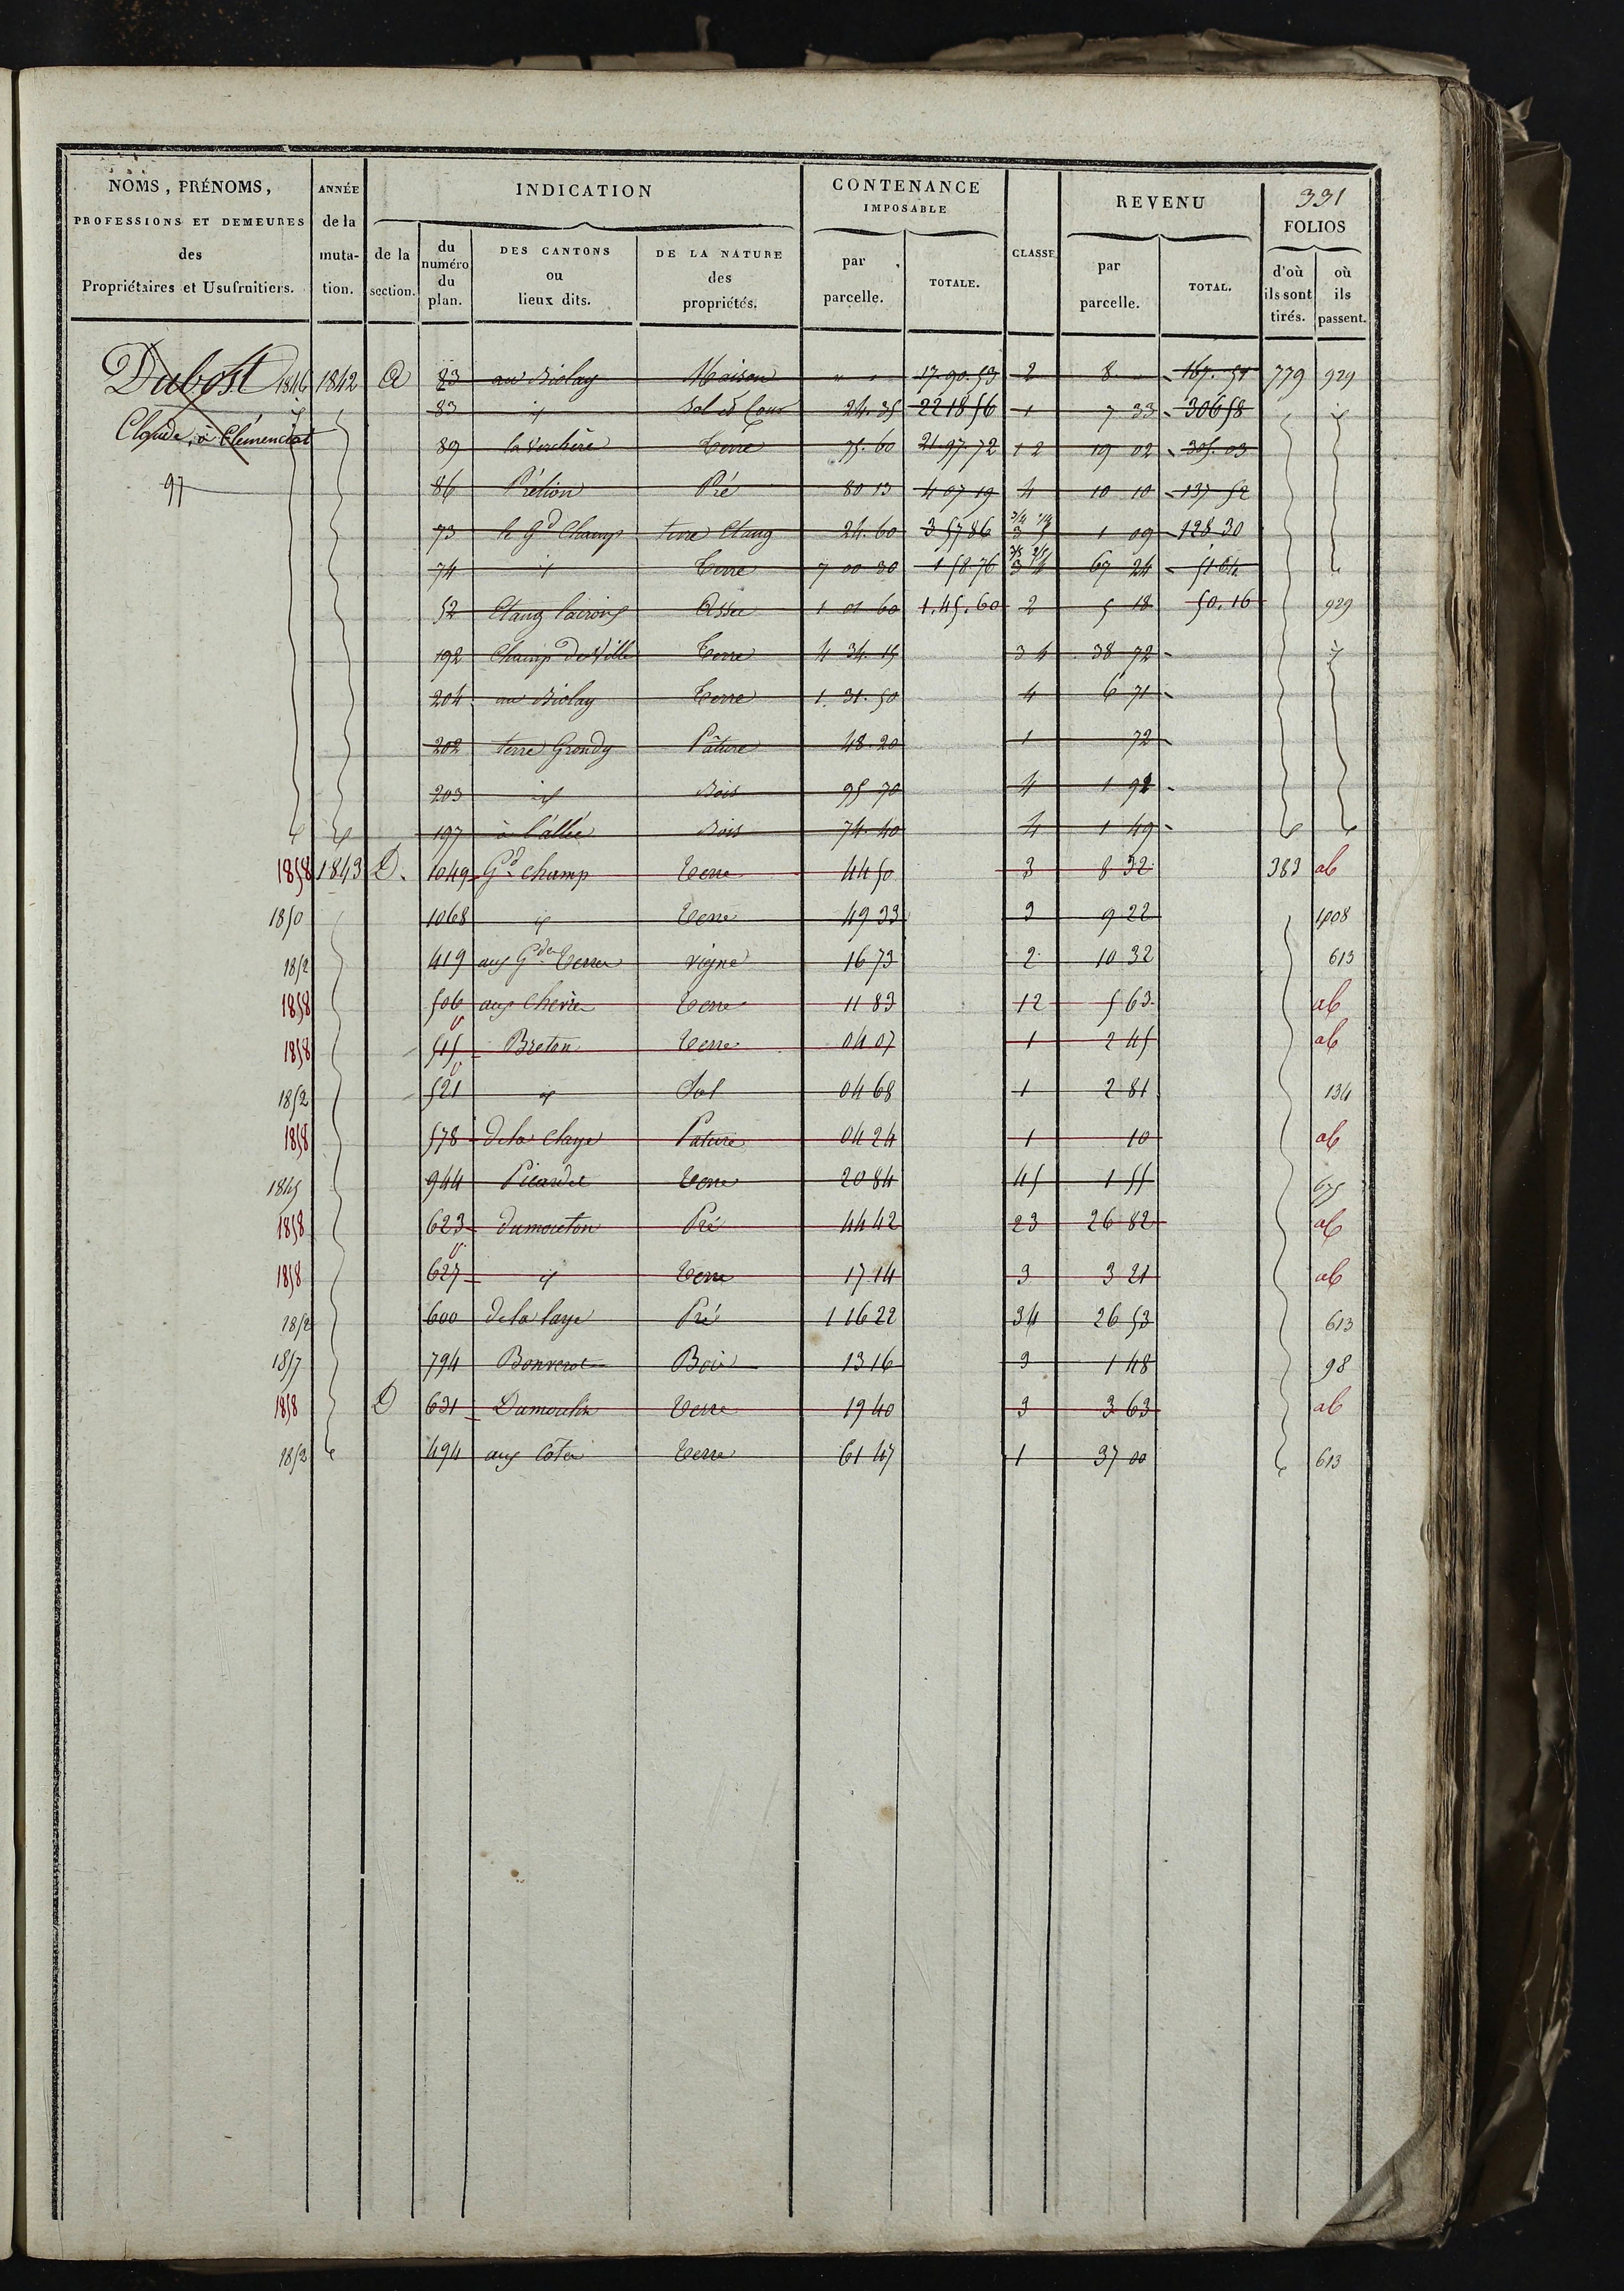 331
NOMS, PRÉNOMS, PROFESSIONS ET DEMEURES des Propriétaires et Usufruitiers.
ANNÉE de la muta-tion.
INDICATION
de la section.
du numéro du plan.
DES CANTONS ou lieux dits.
DE LA NATURE des propriétés.
CONTENANCE IMPOSABLE
par parcelle.
TOTALE.
CLASSE
REVENU
par parcelle.
TOTAL.
FOLIOS
d'où ils sont tirés.
où ils passent.
Dubost 1846 1842 A 83 au Biolay Maison " " 17.90.53 2 8 167.51 779 929
Claude, à Clémenciat 83 id Sol et Cour 24.35 22 18 56 1 7 33 306 58 id
89 la Verchère Terre 75.60 21.97 72 1 2 19 02 305.03
97 86 Prélion Pré 80 13 4 07 19 4 10 10 137 52
73 le Gd Champ terre Etang 24.60 3 57 86 3 5 1 09 128 30
74 id Terre 7 00 30 1 58 76 3 4 67 24 51 64
52 Etang Assec 1 01 60 1.45.60 2 5 18 50.16 929
192 Champ de Ville Terre 4 34.15 3 4 38 72 id
204 au Biolay Terre 1.31.50 4 6 71
202 terre Grondy Pâture 48.20 1 72
203 id Bois 95 70 4 1 92
id id 197 à l'allée Bois 74.40 4 1 49 id id
1858 1843 D. 1049 Gd champ Terre 44 50 3 8 32 383 ab
1850 1068 id Terre 49 33 3 9 22 1008
1852 419 aux Gdes Terres vigne 16 73 2 10 32 613
1858 506 aux Terre 11 83 12 5 63 ab
1858 515 Breton Terre 04 07 1 2 45 ab
1852 521 id Sol 04 68 1 2 81 134
1858 578 de la Claye Pature 04 24 1 10 ab
1845 944 Picardet Terre 20 84 45 1 55 675
1858 623 Dumouton Pré 44 42 23 26 82 ab
1858 627 id Terre 17 14 3 3 21 ab
1852 600 de la laye Pré 1 16 22 34 26 53 613
1857 794 Bois 13 16 3 1 48 98
1858 D 631 Dumoulin Terre 19 40 3 3 63 ab
1852 494 aux Côtes Terre 61 47 1 37 00 613